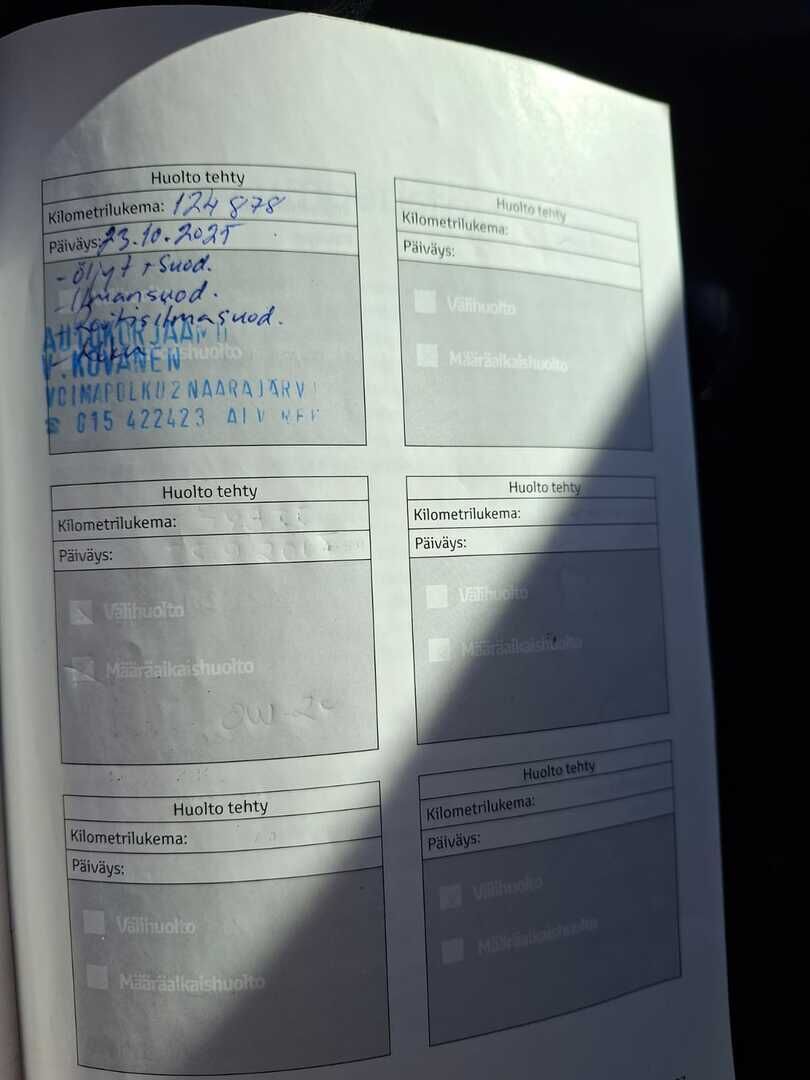 Huolto tehty
Kilometrilukema: 124 878
Päiväys: 23.10.2025
- öljyt + suod.
- Ilmansuod.
- Raitisilmasuod.
AUTOKORJAAMO
V. KOVANEN
VOIMAPOLKU 2 NAARAJÄRVI
☎ 015 422423 ALV REK
Huolto tehty
Kilometrilukema:
Päiväys:
Välihuolto
Määräaikaishuolto
Huolto tehty
Kilometrilukema:
Päiväys:
Välihuolto
Määräaikaishuolto
0W-20
Huolto tehty
Kilometrilukema:
Päiväys:
Välihuolto
Määräaikaishuolto
Huolto tehty
Kilometrilukema:
Päiväys:
Välihuolto
Määräaikaishuolto
Huolto tehty
Kilometrilukema:
Päiväys:
Välihuolto
Määräaikaishuolto